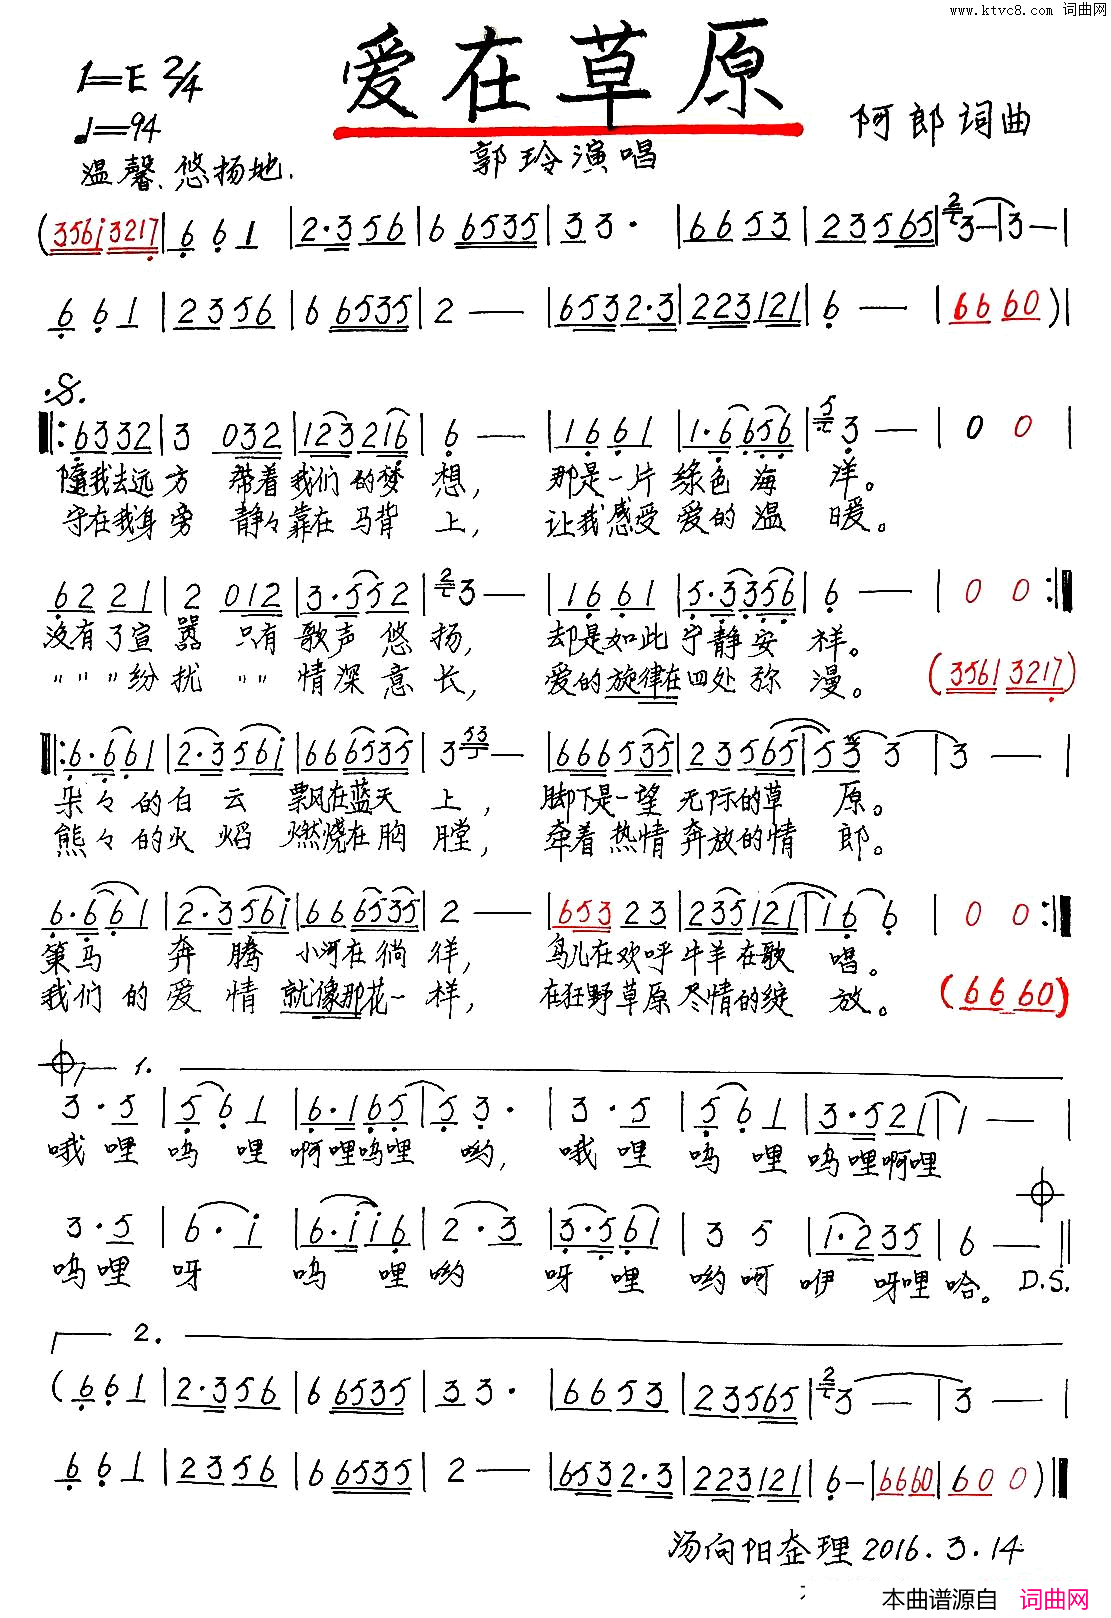 www.ktvc8.com 词曲网
1=E 2/4
爱在草原
♩=94
阿郎词曲
郭玲演唱
温馨、悠扬地.
(356i 3217 | 6 6 1 | 2·3 56 | 6 6535 | 33· | 66 53 | 23 565 | 3— | 3— |
6 6 1 | 23 56 | 6 6535 | 2 — | 6532·3 | 223121 | 6 — | 66 60 ) |
6332 | 3 032 | 123216 | 6 — | 1661 | 1·6656 | 3 — | 0 0 |
随我去远方 带着我们的梦想， 那是一片绿色海洋。
守在我身旁 静々靠在马背上， 让我感受爱的温暖。
6221 | 2 012 | 3·552 | 3 — | 1661 | 5·3356 | 6 — | 0 0 :|
没有了宣嚣 只有歌声悠扬， 却是如此宁静安祥。
〃〃〃纷扰 〃〃情深意长， 爱的旋律在四处弥漫。 (3561 3217)
6·661 | 2·356i | 666535 | 3 — | 666535 | 235655 | 5 3 3 | 3 — |
朵々的白云 飘在蓝天上， 脚下是一望无际的草原。
熊々的火焰 燃烧在胸膛， 牵着热情奔放的情郎。
6·661 | 2·356i | 666535 | 2 — | 65323 | 235121 | 1 6 6 | 0 0 :|
策马奔腾 小河在徜徉， 鸟儿在欢呼牛羊在歌唱。
我们的爱情 就像那花一样， 在狂野草原尽情的绽放。 (66 60)
1.
3·5 | 5 6 1 | 6·165 | 5 3· | 3·5 | 5 6 1 | 3·521 | 1 — |
哦哩呜哩啊哩呜哩哟， 哦哩呜哩呜哩啊哩
3·5 | 6·i | 6·ii6 | 2·3 | 3·561 | 3 5 | 1·235 | 6 — ||
呜哩呀呜哩哟呀哩哟呵咿呀哩哈。 D.S.
2.
(6 6 1 | 2·356 | 6 6535 | 33· | 6653 | 23565 | 3 — | 3 — |
6 6 1 | 2356 | 6 6535 | 2 — | 6532·3 | 223121 | 6 — | 6660 | 60 0 )||
汤向阳整理2016.3.14
本曲谱源自 词曲网